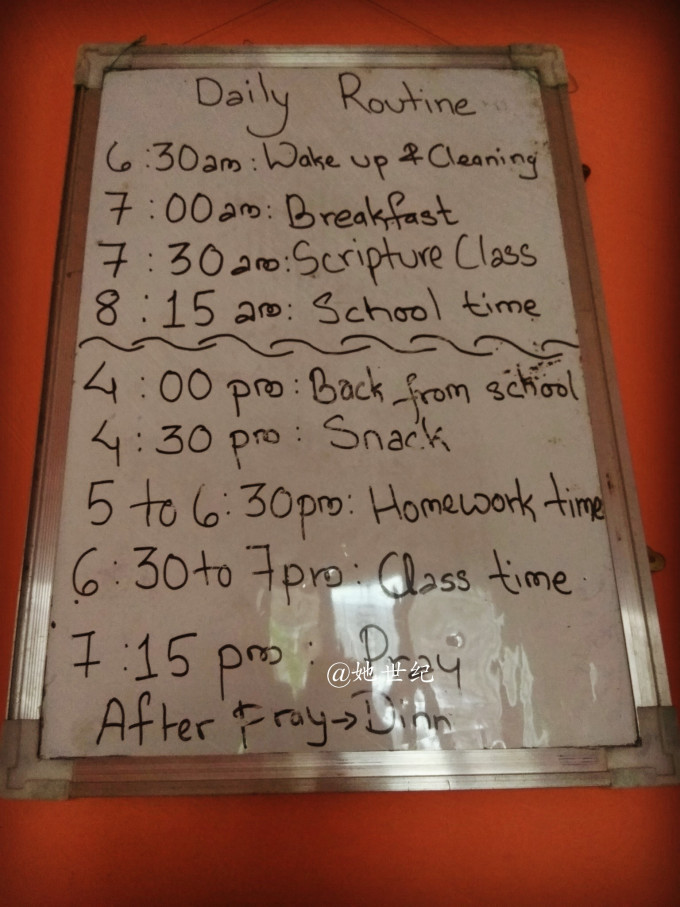 Daily Routine
6:30am: Wake up & Cleaning
7:00am: Breakfast
7:30am: Scripture Class
8:15 am: School time
4:00 pm: Back from school
4:30 pm: Snack
5 to 6:30pm: Homework time
6:30 to 7pm: Class time
7:15 pm: Pray
@她世纪
After Pray→Dinn